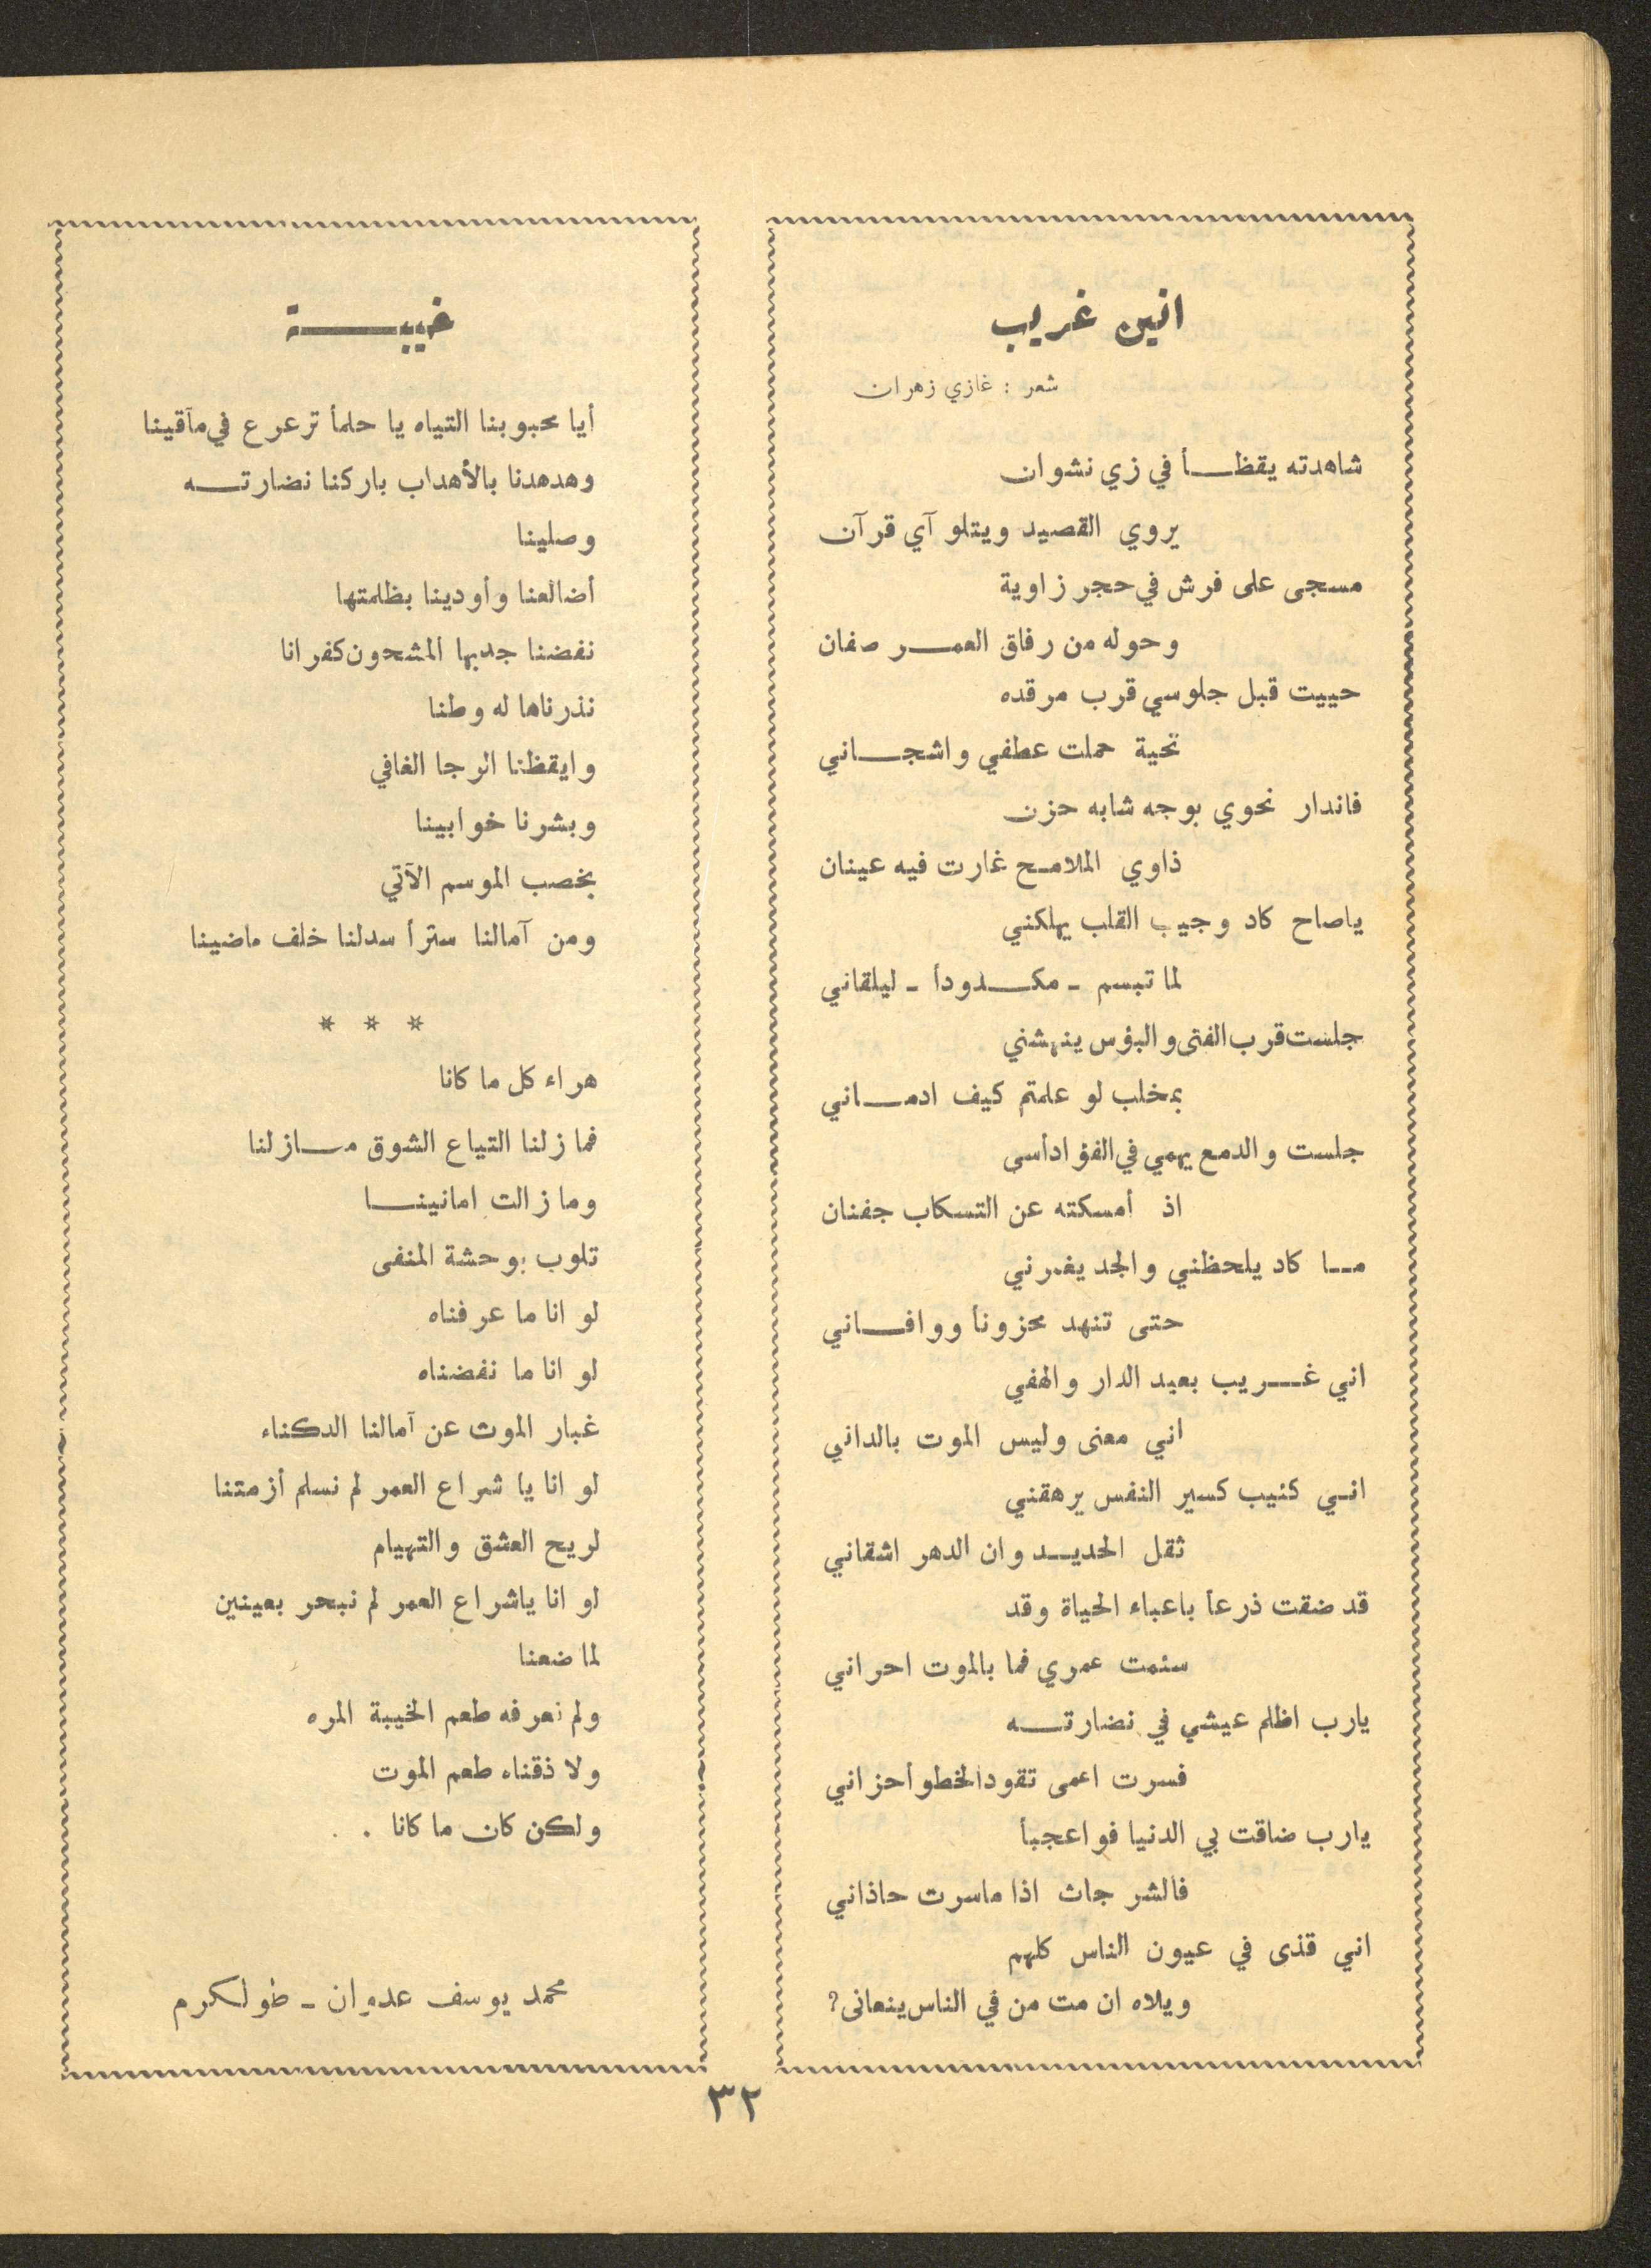 انين غريب
شعر : غازي زهران
شاهدته يقظـــأ في زي نشوان
يروي القصيد ويتلو آي قرآن
مسجى على فرش في حجر زاوية
وحوله من رفاق العمـــر صفان
حييت قبل جلوسي قرب مرقده
تحية حملت عطفي واشجـــاني
فاندار نحوي بوجه شابه حزن
ذاوي الملامح غارت فيه عينان
ياصاح كاد وجيب القلب يهلكني
لما تبسم - مكـــدودأ - ليلقاني
جلست قرب الفتى والبؤس ينهشني
بمخلب لو علمتم كيف ادمـــاني
جلست والدمع يهمي في الفؤادأسى
اذ أمسكته عن التسكاب جفنان
مــا كاد يلحظني والجد يغمرني
حتى تنهد محزونأ ووافـــاني
اني غـــريب بعيد الدار والهفي
اني معنى وليس الموت بالداني
انـي كئيب كسير النفس يرهقني
ثقل الحديـــد وان الدهر اشقاني
قد ضقت ذرعأ باعباء الحياة وقد
سئمت عمري فما بالموت احراني
يارب اظلم عيشي في نضارتـــه
فسرت اعمى تقودالخطو أحزاني
يارب ضاقت بي الدنيا فواعجبأ
فالشر جاث اذا ماسرت حاذاني
اني قذى في عيون الناس كلهم
ويلاه ان مت من في الناس ينعانى؟
خيبـــــة
أيا محبوبنا التياه يا حلمأ ترعرع في مآقينا
وهدهدنا بالأهداب باركنا نضارتـــه
وصلينا
أضالعنا وأودينا بظلمتها
نفضنا جدبها المشحون كفرانا
نذرناها له وطنا
وايقظنا الرجا الغافي
وبشرنا خوابينا
بخصب الموسم الآتي
ومن آمالنا سترأ سدلنا خلف ماضينا
* * *
هراء كل ما كانا
فما زلنا التياع الشوق مـــازلنا
وما زالت امانينـــا
تلوب بوحشة المنفى
لو انا ما عرفناه
لو انا ما نفضناه
غبار الموت عن آمالنا الدكناء
لو انا يا شراع العمر لم نسلم أزمتنا
لريح العشق والتهيام
لو انا ياشراع العمر لم نبحر بعينين
لما ضعنا
ولم نعرفه طعم الخيبة المره
ولا ذقناه طعم الموت
ولكن كان ما كانا . .
محمد يوسف عدوان - طولكرم
٣٢